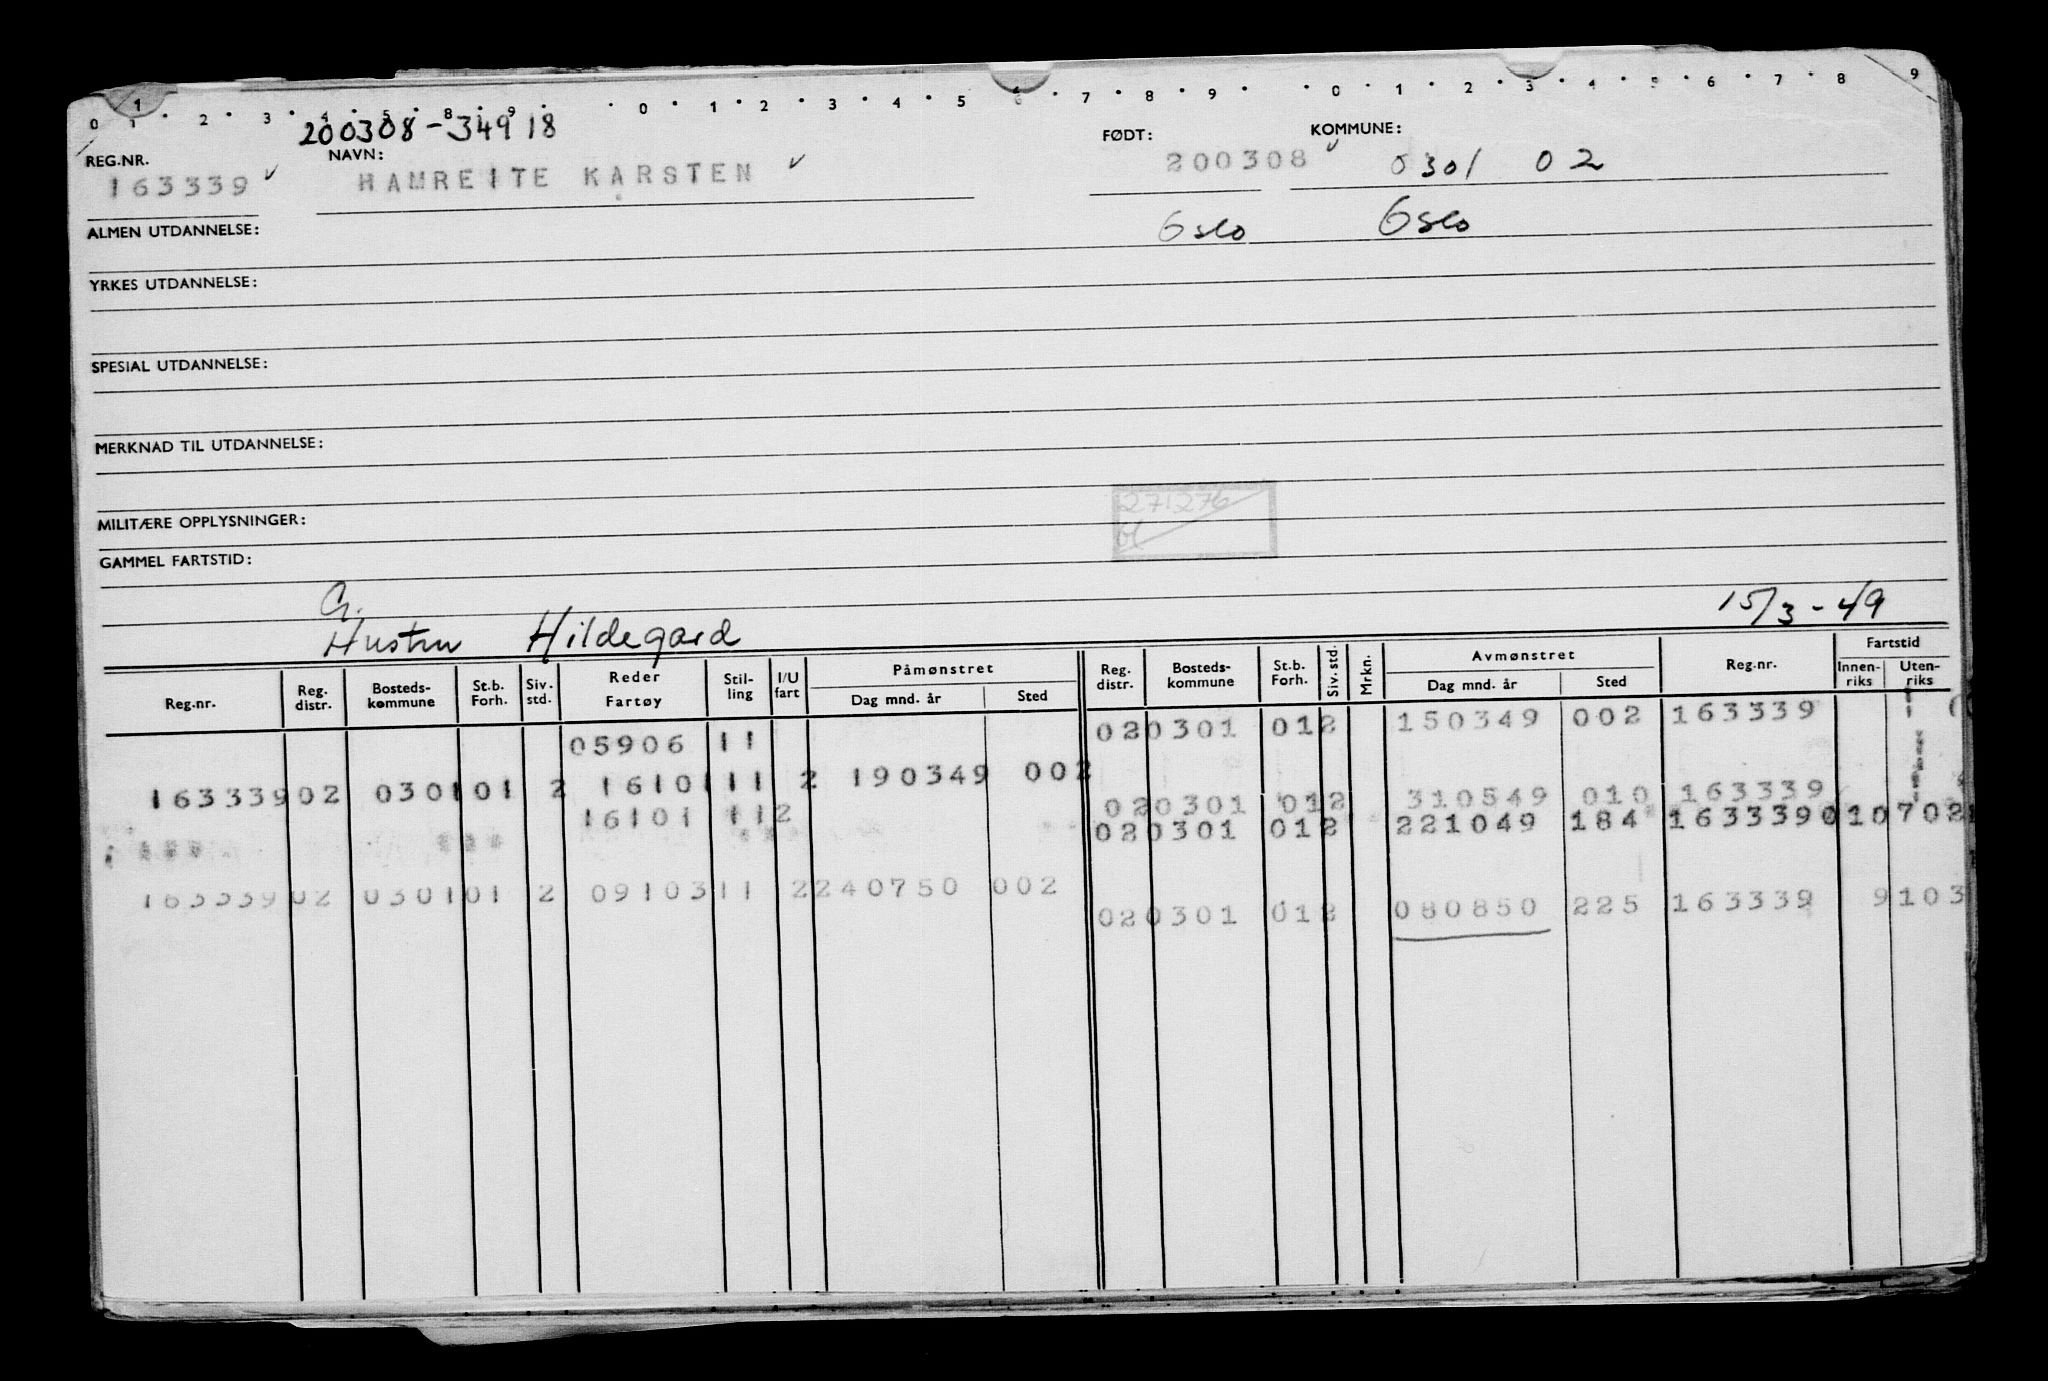 0 1 2 3 4 5 8 9 0 1 2 3 4 5 6 7 8 9 0 1 2 3 4 5 6 7 8 9
1
200308-34918
REG.NR. NAVN: FØDT: KOMMUNE:
163339 HAMREITE KARSTEN 200308 0301 02
ALMEN UTDANNELSE: Oslo Oslo
YRKES UTDANNELSE:
SPESIAL UTDANNELSE:
MERKNAD TIL UTDANNELSE:
271276
MILITÆRE OPPLYSNINGER:
GAMMEL FARTSTID:
G. 15/3-49
Hustru Hildegard
Reg.nr. Reg. distr. Bosteds-kommune St.b. Forh. Siv. std. Reder Fartøy Stil-ling I/U fart Påmønstret Dag mnd. år Sted Reg. distr. Bosteds-kommune St.b. Forh. Siv. std. Mrkn. Avmønstret Dag mnd. år Sted Reg.nr. Fartstid Innen-riks Uten-riks
05906 11 020301 012 150349 002 163339
16333902 030101 2 1610111 2 190349 002 020301 012 310549 010 163339
16101 112 020301 012 221049 184 163339010702
16333902 030101 2 0910311 2240750 002 020301 012 080850 225 163339 9103